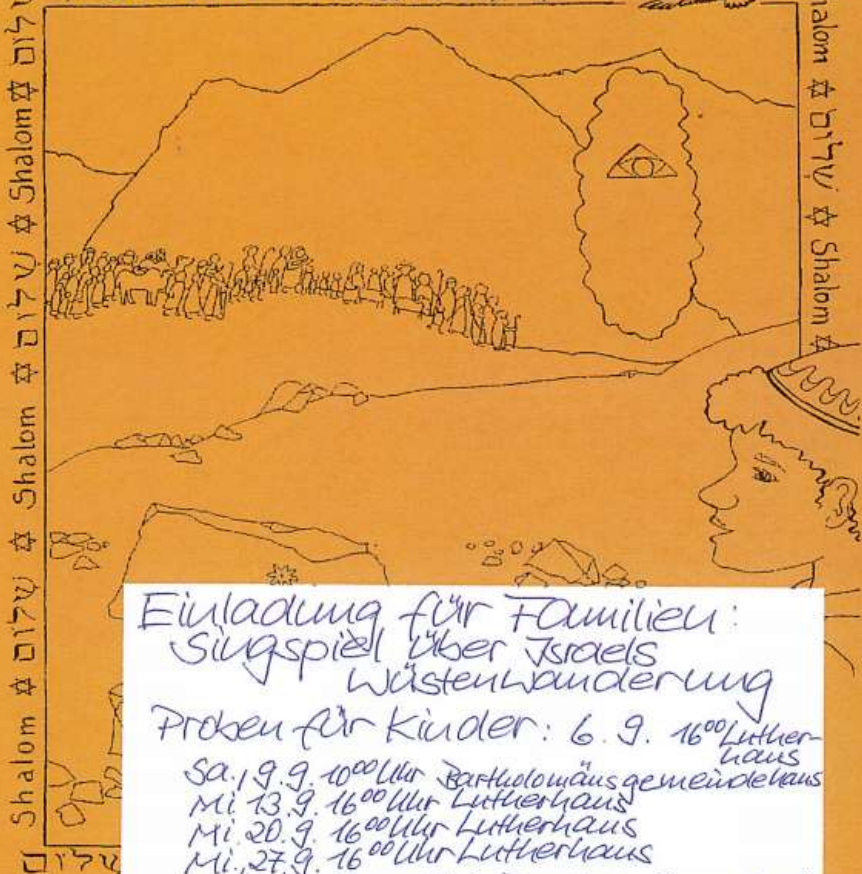 Shalom ✡ שלום ✡ Shalom ✡ שלום ✡ Shalom ✡ שלום
alom ✡ שלום ✡ Shalom ✡
Einladung für Familien:
Singspiel über Israels
Wüstenwanderung
Proben für Kinder: 6. 9. 16⁰⁰ Luther-
haus
Sa., 9.9. 10⁰⁰ Uhr Bartholomäusgemeindehaus
Mi 13.9. 16⁰⁰ Uhr Lutherhaus
Mi. 20.9. 16⁰⁰ Uhr Lutherhaus
Mi., 27.9. 16⁰⁰ Uhr Lutherhaus
שלום